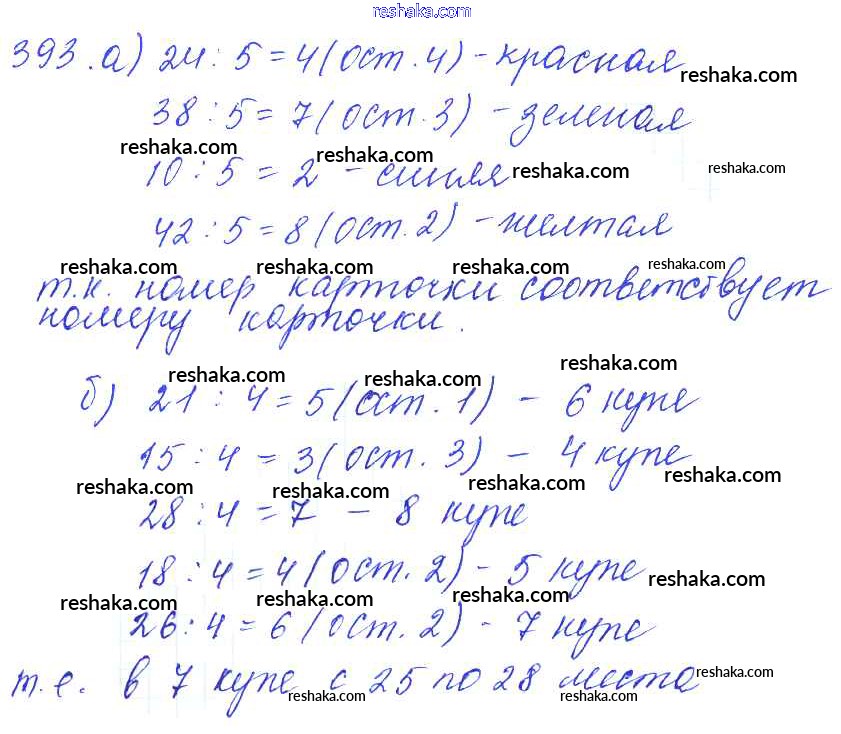 reshaka.com
393. а) 24 : 5 = 4 (ост. 4) - красная
reshaka.com
38 : 5 = 7 (ост. 3) - зеленая
reshaka.com reshaka.com
10 : 5 = 2 - синяя
reshaka.com reshaka.com
42 : 5 = 8 (ост. 2) - желтая
reshaka.com reshaka.com reshaka.com reshaka.com
т.к. номер карточки соответствует
номеру карточки.
reshaka.com reshaka.com reshaka.com
б) 21 : 4 = 5 (ост. 1) - 6 купе
15 : 4 = 3 (ост. 3) - 4 купе
reshaka.com reshaka.com reshaka.com reshaka.com
28 : 4 = 7 - 8 купе
18 : 4 = 4 (ост. 2) - 5 купе
reshaka.com
reshaka.com reshaka.com reshaka.com
26 : 4 = 6 (ост. 2) - 7 купе
т.е. в 7 купе с 25 по 28 места
reshaka.com reshaka.com reshaka.com